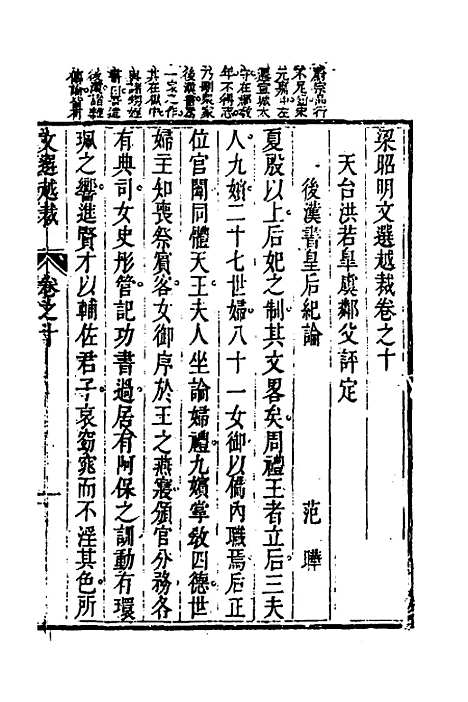 梁昭明文選越裁卷之十
天台洪若臯虞鄰父評定
後漢書皇后紀論 范曄
夏殷以上后妃之制其文畧矣周禮王者立后三夫
人九嬪二十七世婦八十一女御以備內職焉后正
位宮闈同體天王夫人坐論婦禮九嬪掌敎四德世
婦主知喪祭賓客女御序於王之燕寢頒官分務各
有典司女史彤管記功書過居有阿保之訓動有環
珮之響進賢才以輔佐君子哀窈窕而不淫其色所
文選越裁 卷之十 一
蔚宗品行
不足而宋
元嘉中左
遷宣城太
守在郡數
年不得志
乃刪衆家
後漢書爲
一家之作